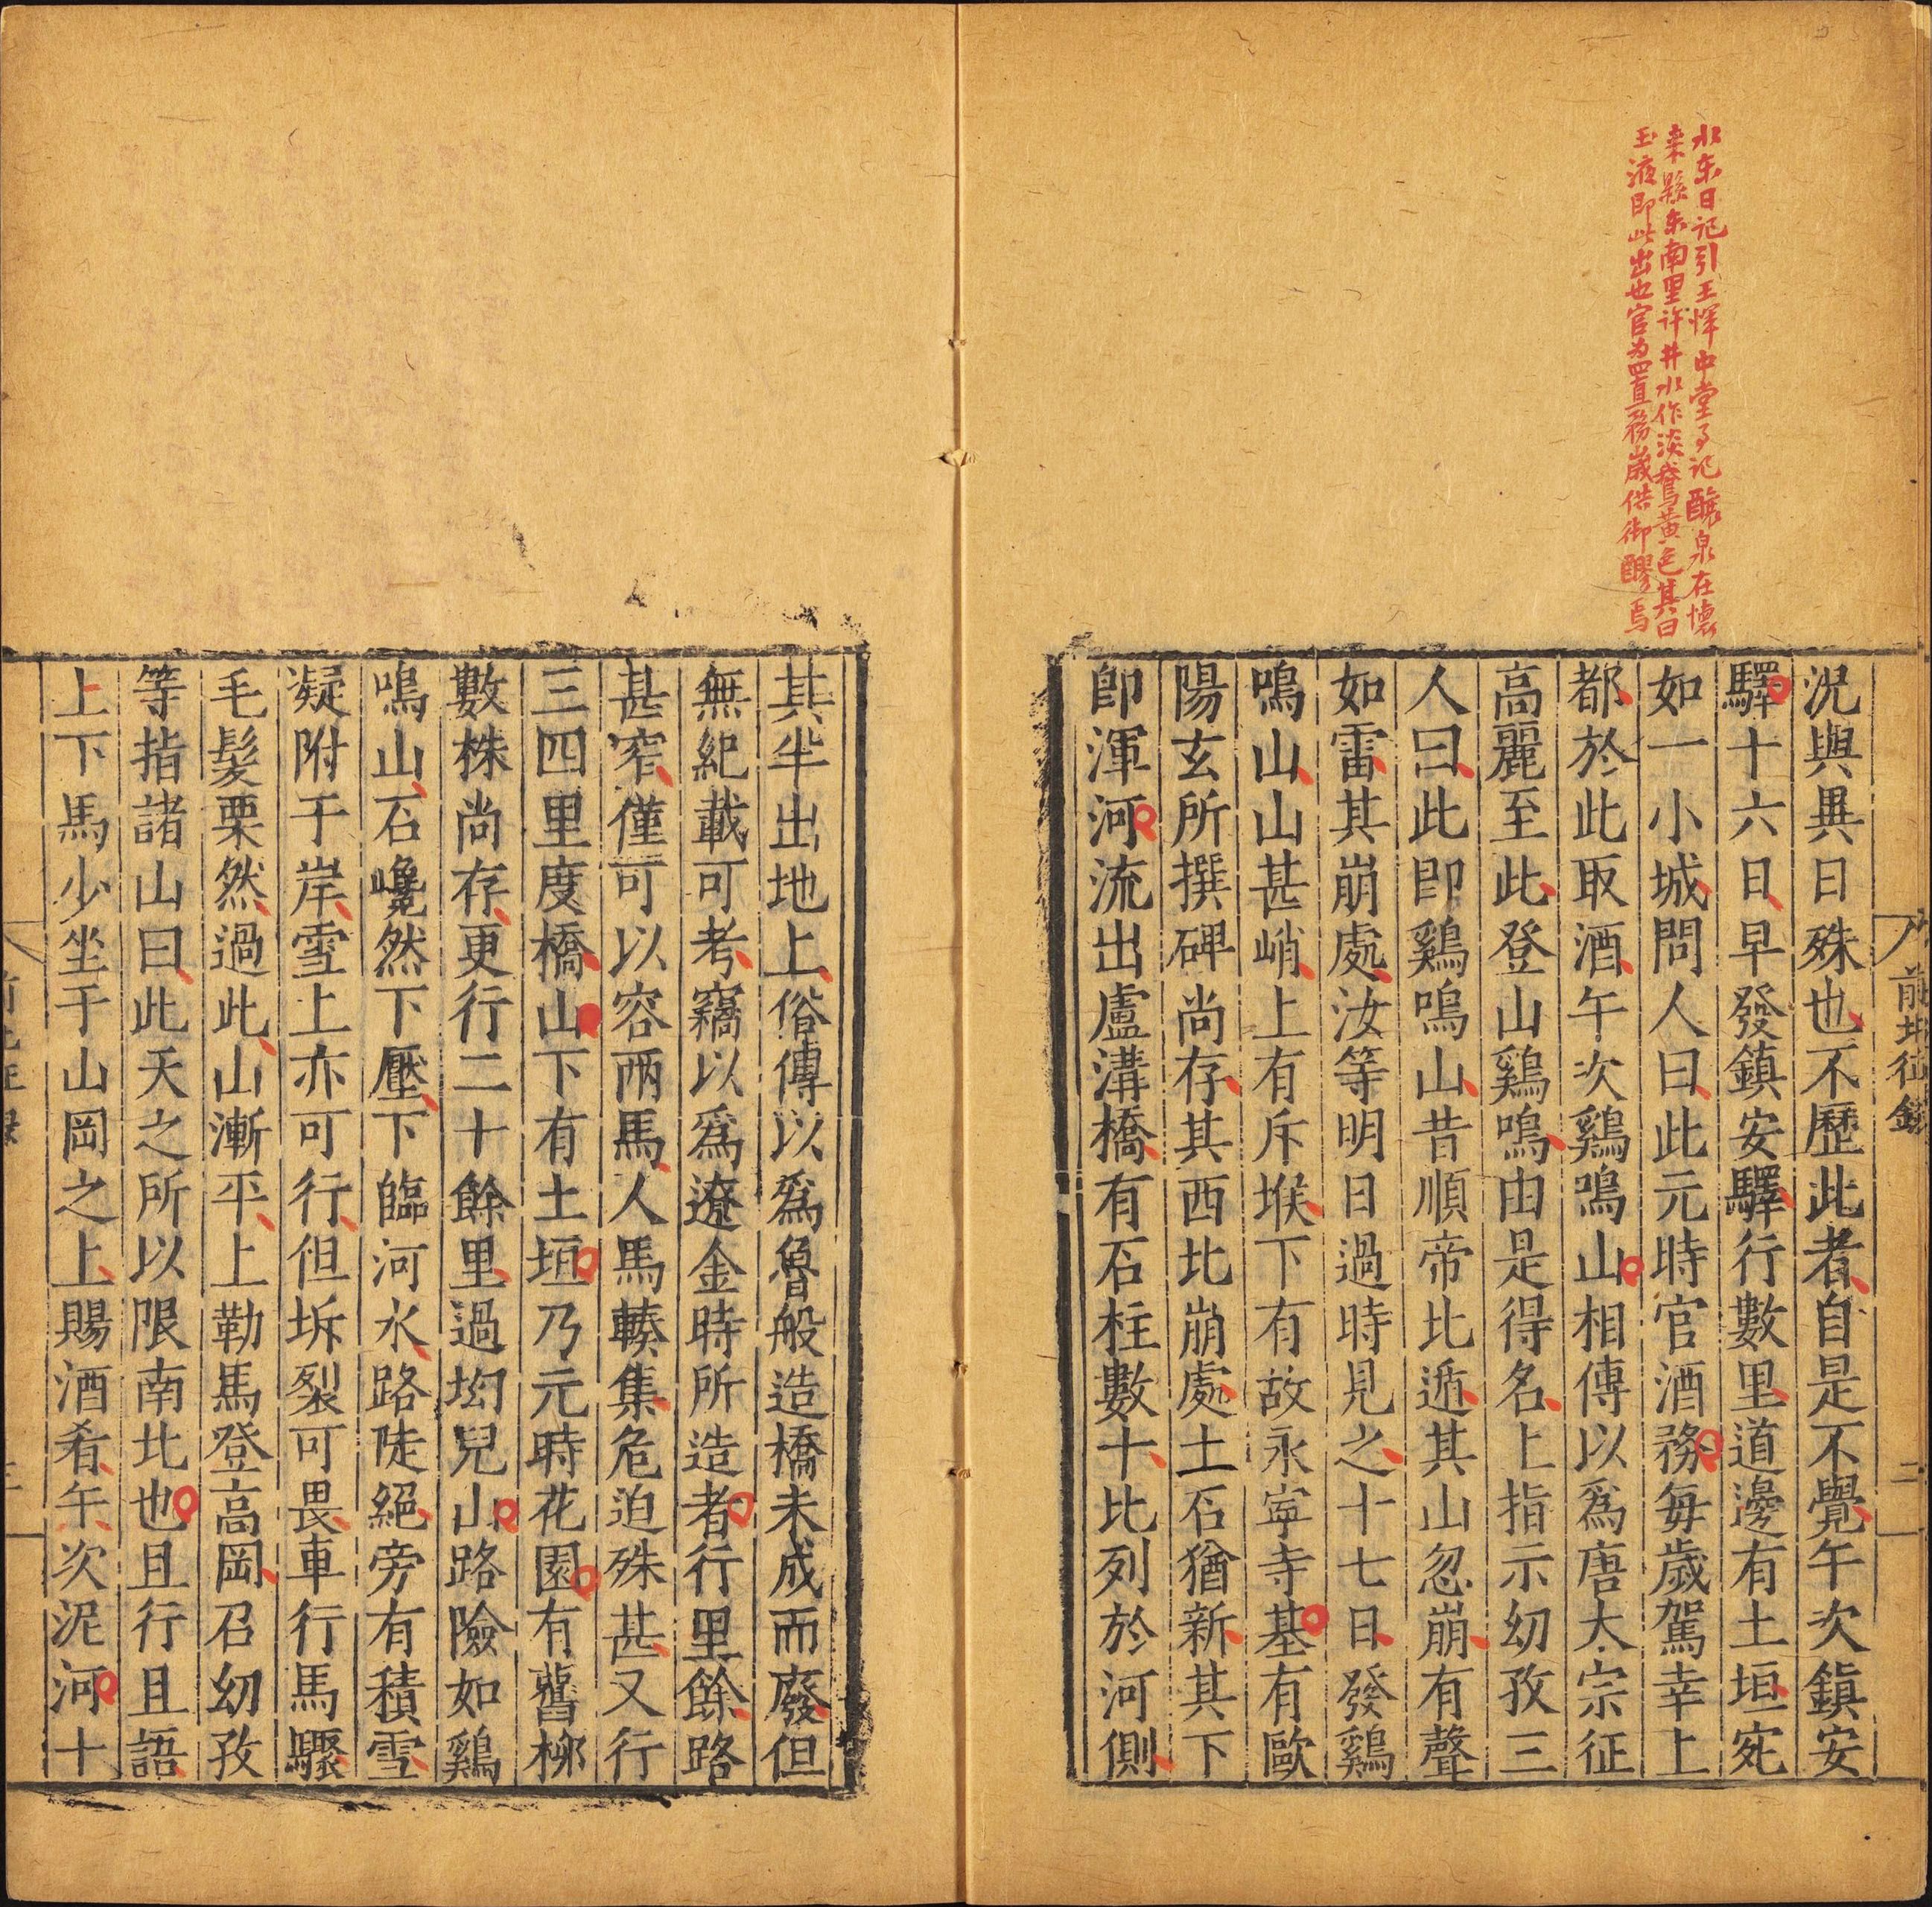 水东日记引王惲中堂事记醸泉在懷
来縣东南里许井水作淡鵞黄色其曰
玉液即此出也官为置務歲供御醪焉
況與異日殊也不歷此者自是不覺午次鎮安
驛十六日早發鎮安驛行數里道邊有土垣宛
如一小城問人曰此元時官酒務每歲駕幸上
都於此取酒午次鷄鳴山相傳以爲唐太宗征
高麗至此登山鷄鳴由是得名上指示㓜孜三
人曰此即鷄鳴山昔順帝北遁其山忽崩有聲
如雷其崩處汝等明日過時見之十七日發鷄
鳴山山甚峭上有斥堠下有故永寧寺基有歐
陽玄所撰碑尚存其西北崩處土石猶新其下
即渾河流出盧溝橋有石柱數十比列於河側
前北征錄
二
其半出地上俗傳以爲魯般造橋未成而廢但
無紀載可考竊以爲遼金時所造者行里餘路
甚窄僅可以容兩馬人馬輳集危迫殊甚又行
三四里度橋山下有土垣乃元時花園有舊栁
數株尚存更行二十餘里過坳兒山路險如鷄
鳴山石巉然下壓下臨河水路陡絕旁有積雪
凝附于岸雪上亦可行但坼裂可畏車行馬驟
毛髮栗然過此山漸平上勒馬登高岡召㓜孜
等指諸山曰此天之所以限南北也且行且語
上下馬少坐于山岡之上賜酒肴午次泥河十